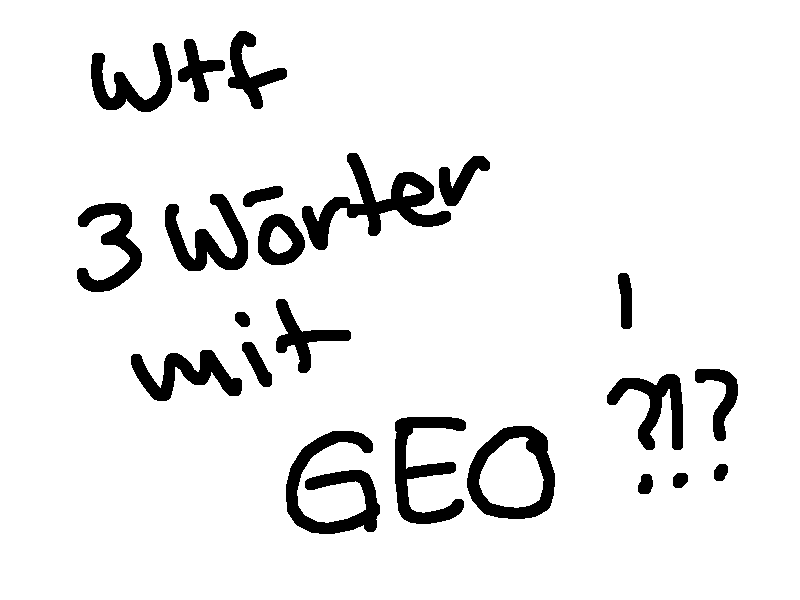 wtf
3 Wörter
mit
GEO ?!?